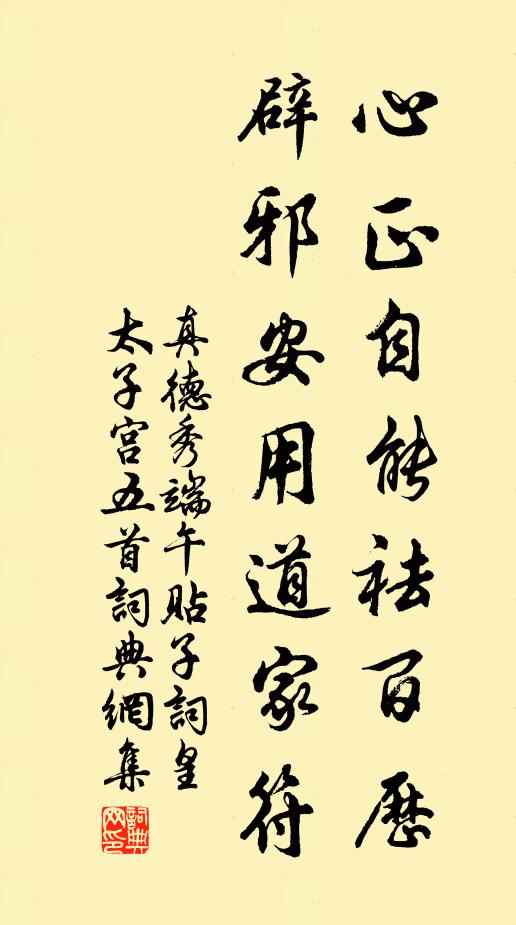 心正自能祛百歷
辟邪安用道家符
真德秀端午貼子詞皇
太子宮五首詞典網集
詞典
网印